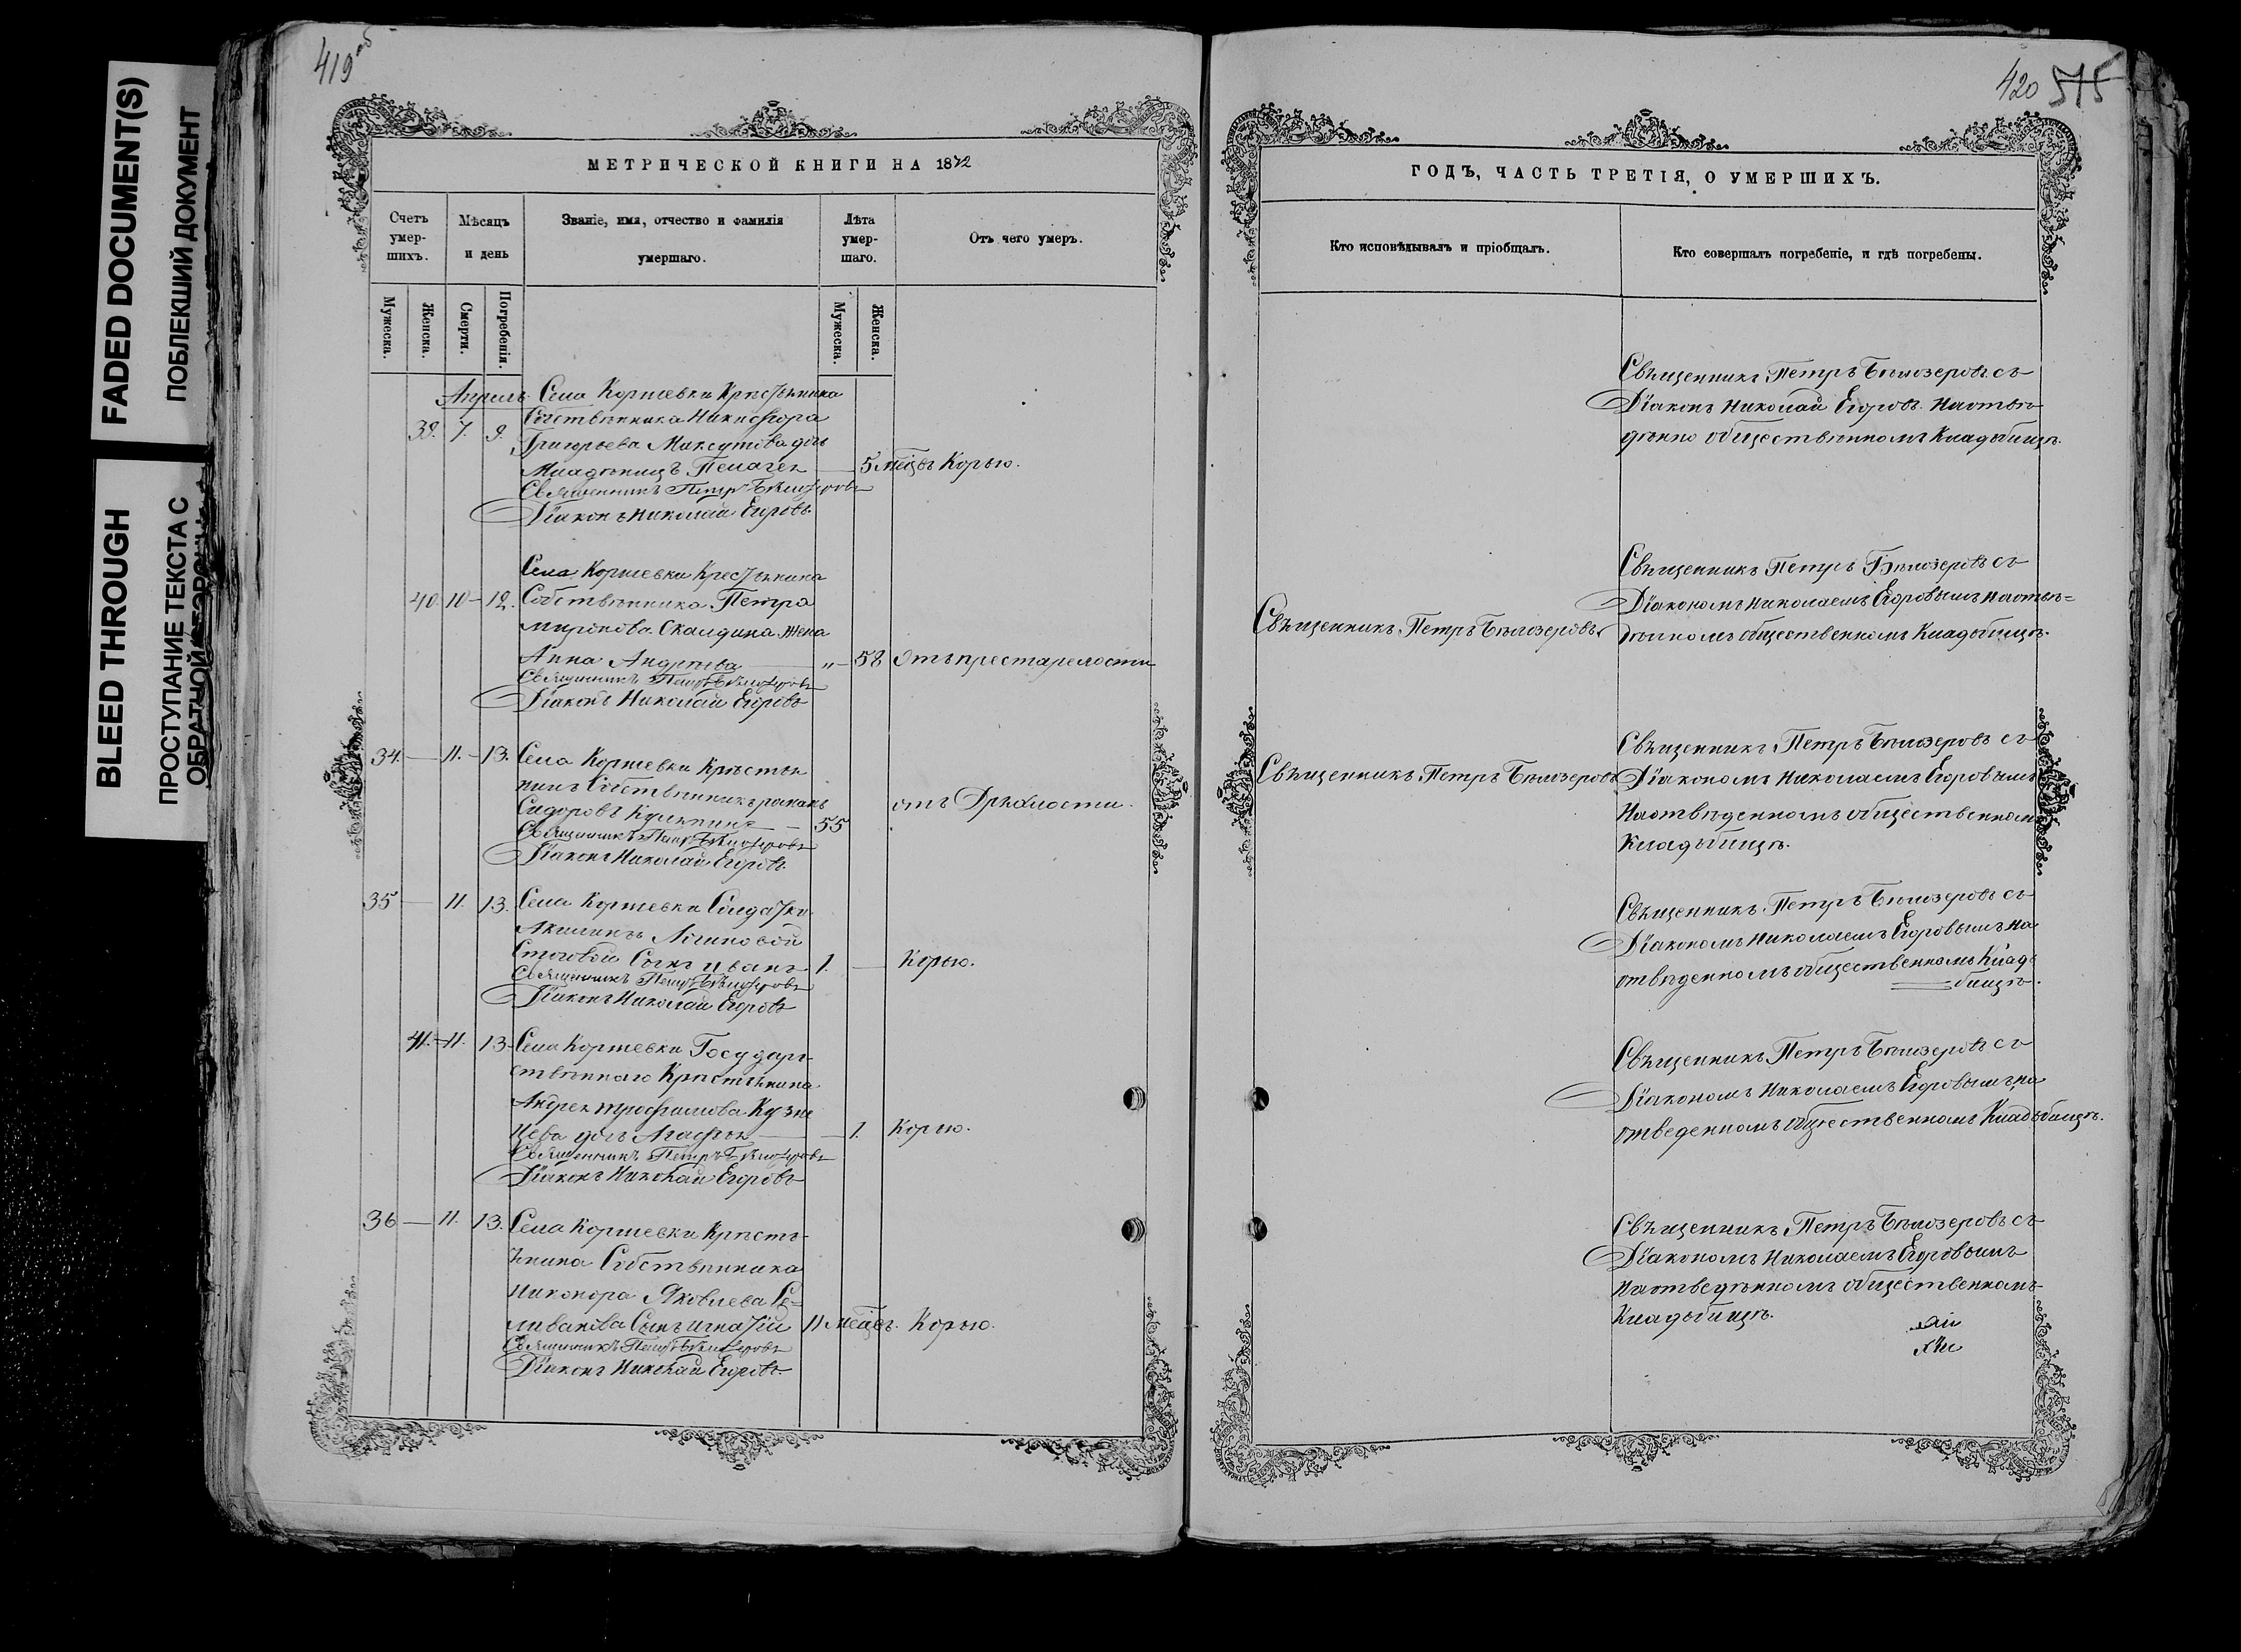 FADED DOCUMENT(S)
ПОБЛЕКШИЙ ДОКУМЕНТ
BLEED THROUGH
ПРОСТУПАНИЕ ТЕКСТА С
ОБРАТНОЙ
419 об
МЕТРИЧЕСКОЙ КНИГИ НА 1872
Счетъ умер-шихъ.
Мѣсяцъ и день
Званіе, имя, отчество и фамилія умершаго.
Лѣта умер-шаго.
Отъ чего умеръ.
Мужеска.
Женска.
Смерти.
Погребенія.
Мужеска.
Женска.
Апрель. Села Коржевки Крестьянина
Собственника Никифора
39. 7. 9. Григорьева дочь
Младенецъ Пелагея 5 мѣсцъ Корью.
Священникъ Петръ Бѣлозеровъ
Діаконъ Николай Егоровъ
Села Коржевки Крестьянина
40. 10 12. Собственника Петра
Миронова Скалдина жена
Анна Андреева „ 58 Отъ престарелости
Священникъ Петръ Бѣлозеровъ
Діаконъ Николай Егоровъ
34. 11. 13. Села Коржевки Крестья
нинъ Собственникъ
Сидоровъ 55 отъ Дряхлости.
Священникъ Петръ Бѣлозеровъ
Діаконъ Николай Егоровъ.
35 11. 13. Села Коржевки Солдатки
Акилины Логиновой
Сынъ Иванъ 1. Корью.
Священникъ Петръ Бѣлозеровъ
Діаконъ Николай Егоровъ
41. 11. 13. Села Коржевки Государ-
ственнаго Крестьянина
Андрея Трофимова Кузне
цева дочь Агафья 1. Корью.
Священникъ Петръ Бѣлозеровъ
Діаконъ Николай Егоровъ
36 11. 13. Села Коржевки Кресть-
янина Собственника
Никонора Яковлева Се-
ливанова Сынъ Игнатій 11 мѣсцъ. Корью.
Священникъ Петръ Бѣлозеровъ
Діаконъ Николай Егоровъ.
420 515
ГОДЪ, ЧАСТЬ ТРЕТІЯ, О УМЕРШИХЪ.
Кто исповѣдывалъ и пріобщалъ.
Кто совершалъ погребеніе, и гдѣ погребены.
Священникъ Петръ Бѣлозеровъ съ
Діаконъ Николай Егоровъ. На отве
денно общественномъ Кладбищѣ.
Священникъ Петръ Бѣлозеровъ съ
Діакономъ Николаемъ Егоровымъ на отве=
Священникъ Петръ Бѣлозеровъ.
денномъ общественномъ Кладбищѣ.
Священникъ Петръ Бѣлозеровъ съ
Священникъ Петръ Бѣлозеровъ
Діакономъ Николаемъ Егоровымъ
На отведенномъ общественномъ
Кладбищѣ.
Священникъ Петръ Бѣлозеровъ съ
Діакономъ Николаемъ Егоровымъ на
отведенномъ общественномъ Клад
бищѣ.
Священникъ Петръ Бѣлозеровъ съ
Діакономъ Николаемъ Егоровымъ на
отведенномъ общественномъ Кладбищѣ.
Священникъ Петръ Бѣлозеровъ съ
Діакономъ Николаемъ Егоровымъ
На отведенномъ общественномъ
Кладбищѣ.